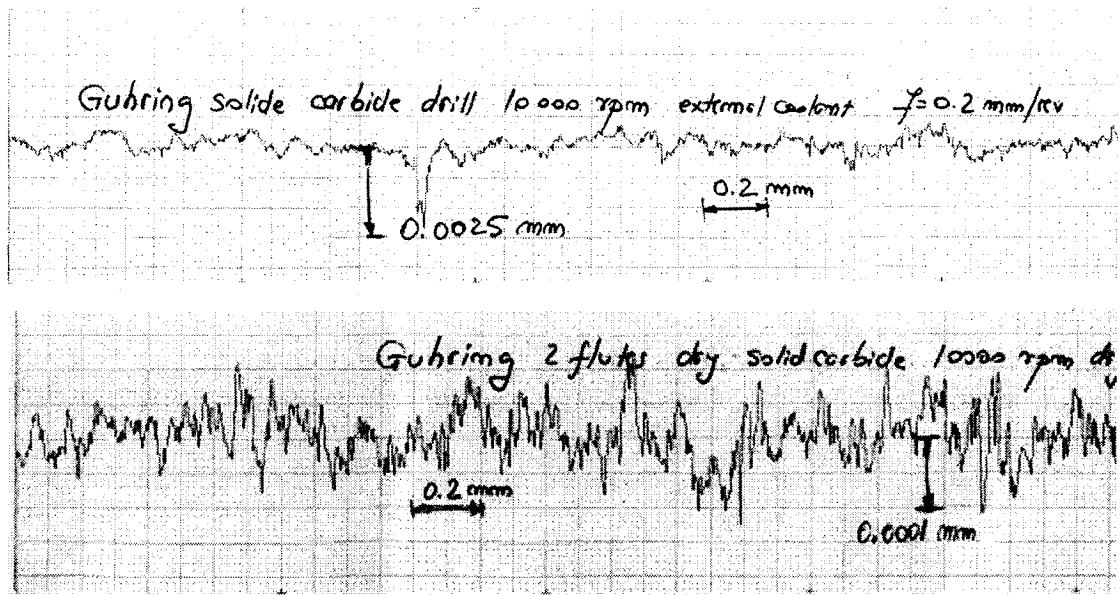 Guhring solide carbide drill 10000 rpm external coolant f=0.2 mm/rev
0.2 mm
0.0025 mm
Guhring 2 flutes dry solid carbide 10000 rpm
0.2 mm
0.0001 mm